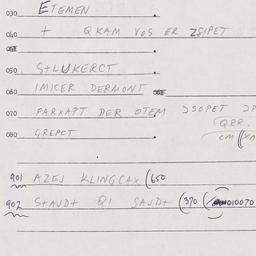 030 ETEMEN
040 + QKAM VOS ER ZSIPET
050 S+LUKERCT
060 IMICER DERMONT
070 PARXAPT DER OTEM JSOPET JP
(QRR.
080 GREPCT
CM (XA
901 AZEJ KLINGCAX (650
902 S+AJD+ QI SAJD+ (370 (010070